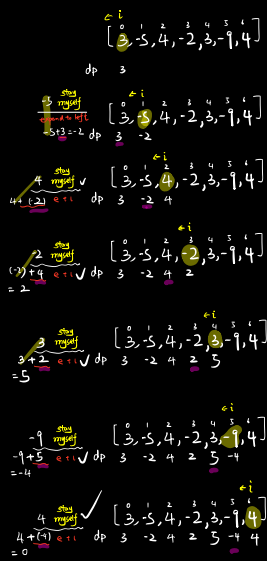 ← i
0 1 2 3 4 5 6
[3, -5, 4, -2, 3, -9, 4]
dp 3
← i
-5 stay myself
0 1 2 3 4 5 6
[3, -5, 4, -2, 3, -9, 4]
expand to left
-5+3=-2 dp 3 -2
← i
4 stay myself ✓
0 1 2 3 4 5 6
[3, -5, 4, -2, 3, -9, 4]
4+(-2) e+l dp 3 -2 4
← i
-2 stay myself
0 1 2 3 4 5 6
[3, -5, 4, -2, 3, -9, 4]
(-2)+4 e+l ✓ dp 3 -2 4 2
= 2
← i
3 stay myself
0 1 2 3 4 5 6
[3, -5, 4, -2, 3, -9, 4]
3+2 e+l ✓ dp 3 -2 4 2 5
=5
← i
-9 stay myself
0 1 2 3 4 5 6
[3, -5, 4, -2, 3, -9, 4]
-9+5 e+l ✓ dp 3 -2 4 2 5 -4
=-4
← i
4 stay myself ✓
0 1 2 3 4 5 6
[3, -5, 4, -2, 3, -9, 4]
4+(-4) e+l dp 3 -2 4 2 5 -4 4
=0